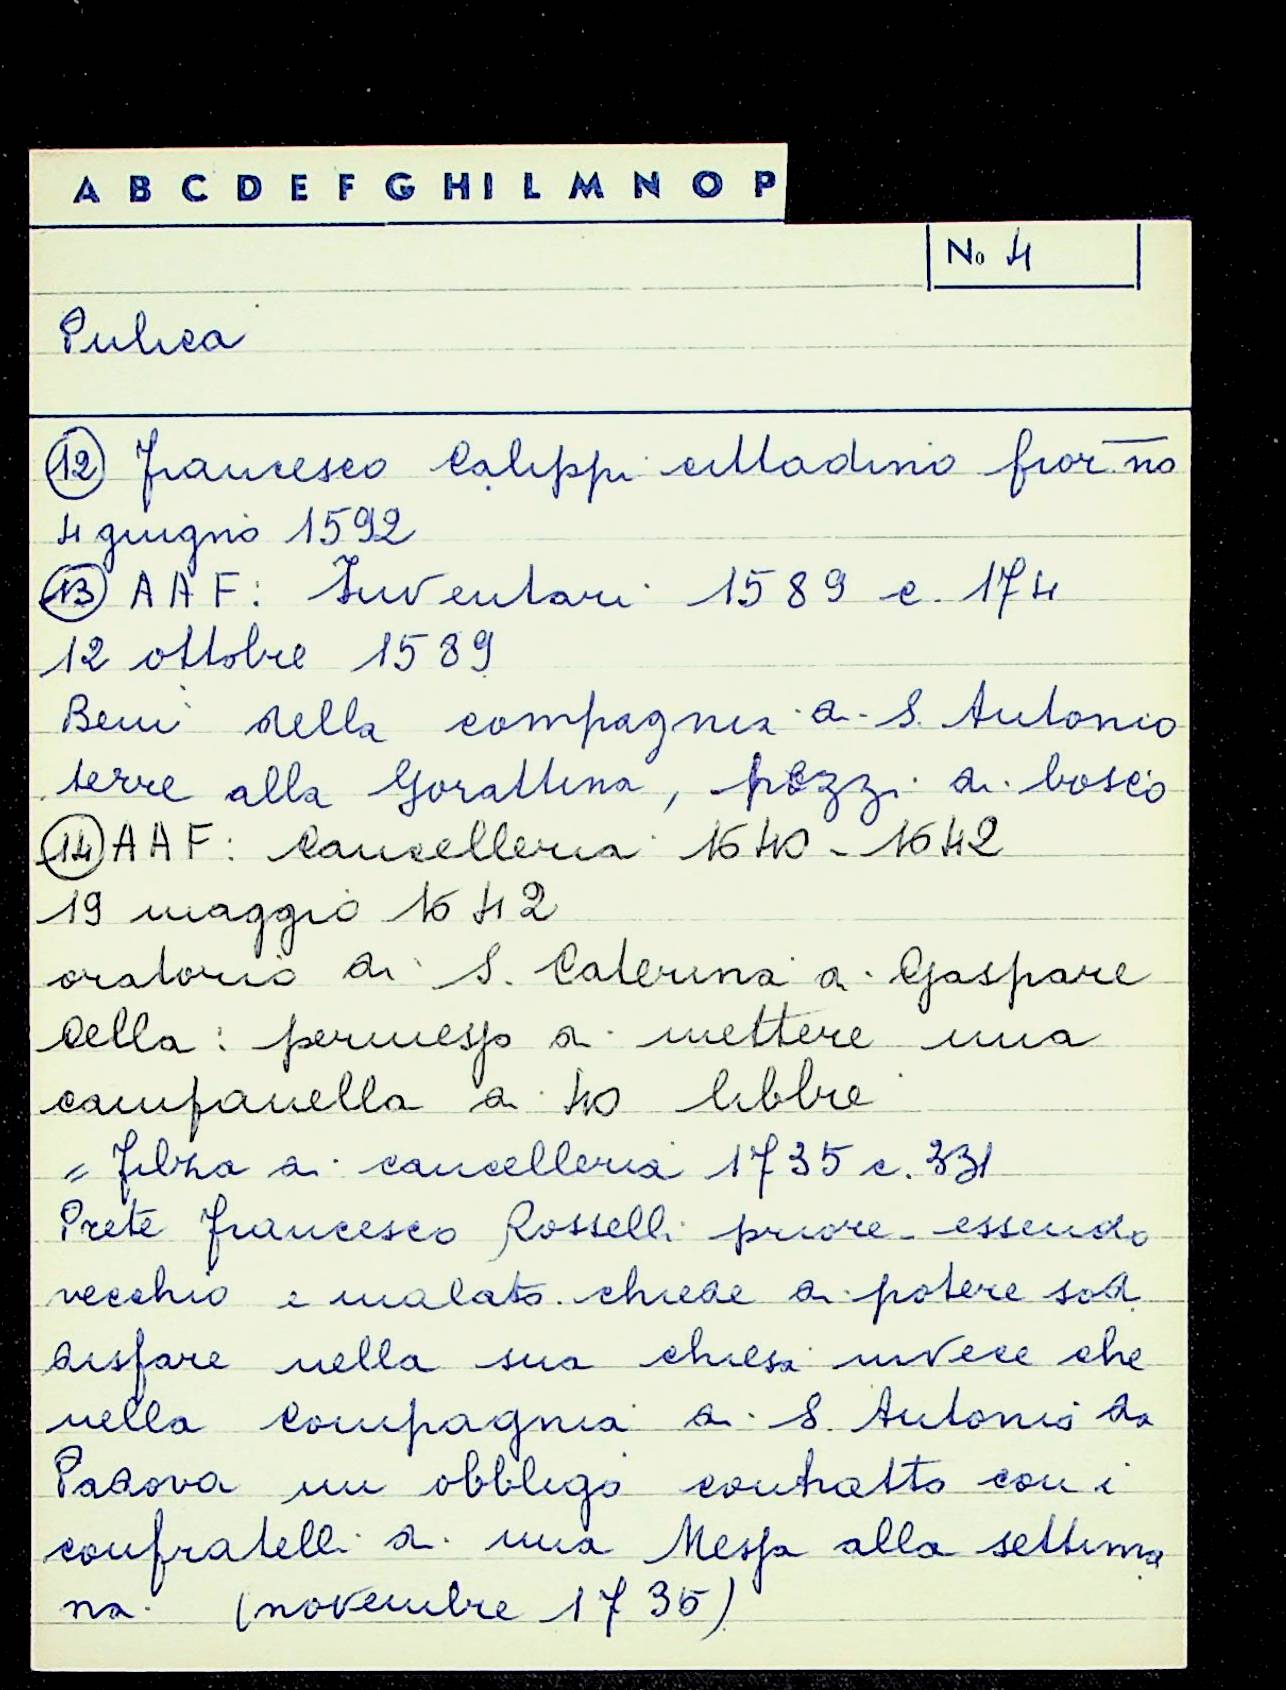 A B C D E F G H I L M N O P
No 4
Pulica
12 Francesco Calippi cittadino fior.no
4 giugno 1592
13 AAF: Inventari 1589 c. 174
12 ottobre 1589
Beni della compagnia di S. Antonio
terre alla Gorattina, pezzi di bosco
14 AAF: Cancelleria 1640-1642
19 maggio 1642
oratorio di S. Caterina di Gaspare
Cella: permesso di mettere una
campanella di 40 libbre
= Filza di cancelleria 1735 c. 331
Prete Francesco Rosselli priore essendo
vecchio e malato chiede di potere sod
disfare nella sua chiesa invece che
nella Compagnia di S. Antonio da
Padova un obbligo contratto con i
confratelli di una Messa alla settima
na. (novembre 1735)